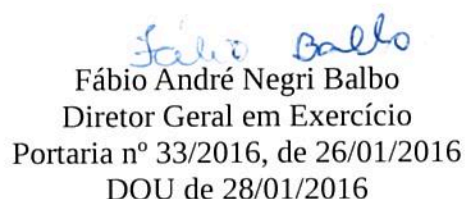 Fábio Balbo
Fábio André Negri Balbo
Diretor Geral em Exercício
Portaria nº 33/2016, de 26/01/2016
DOU de 28/01/2016